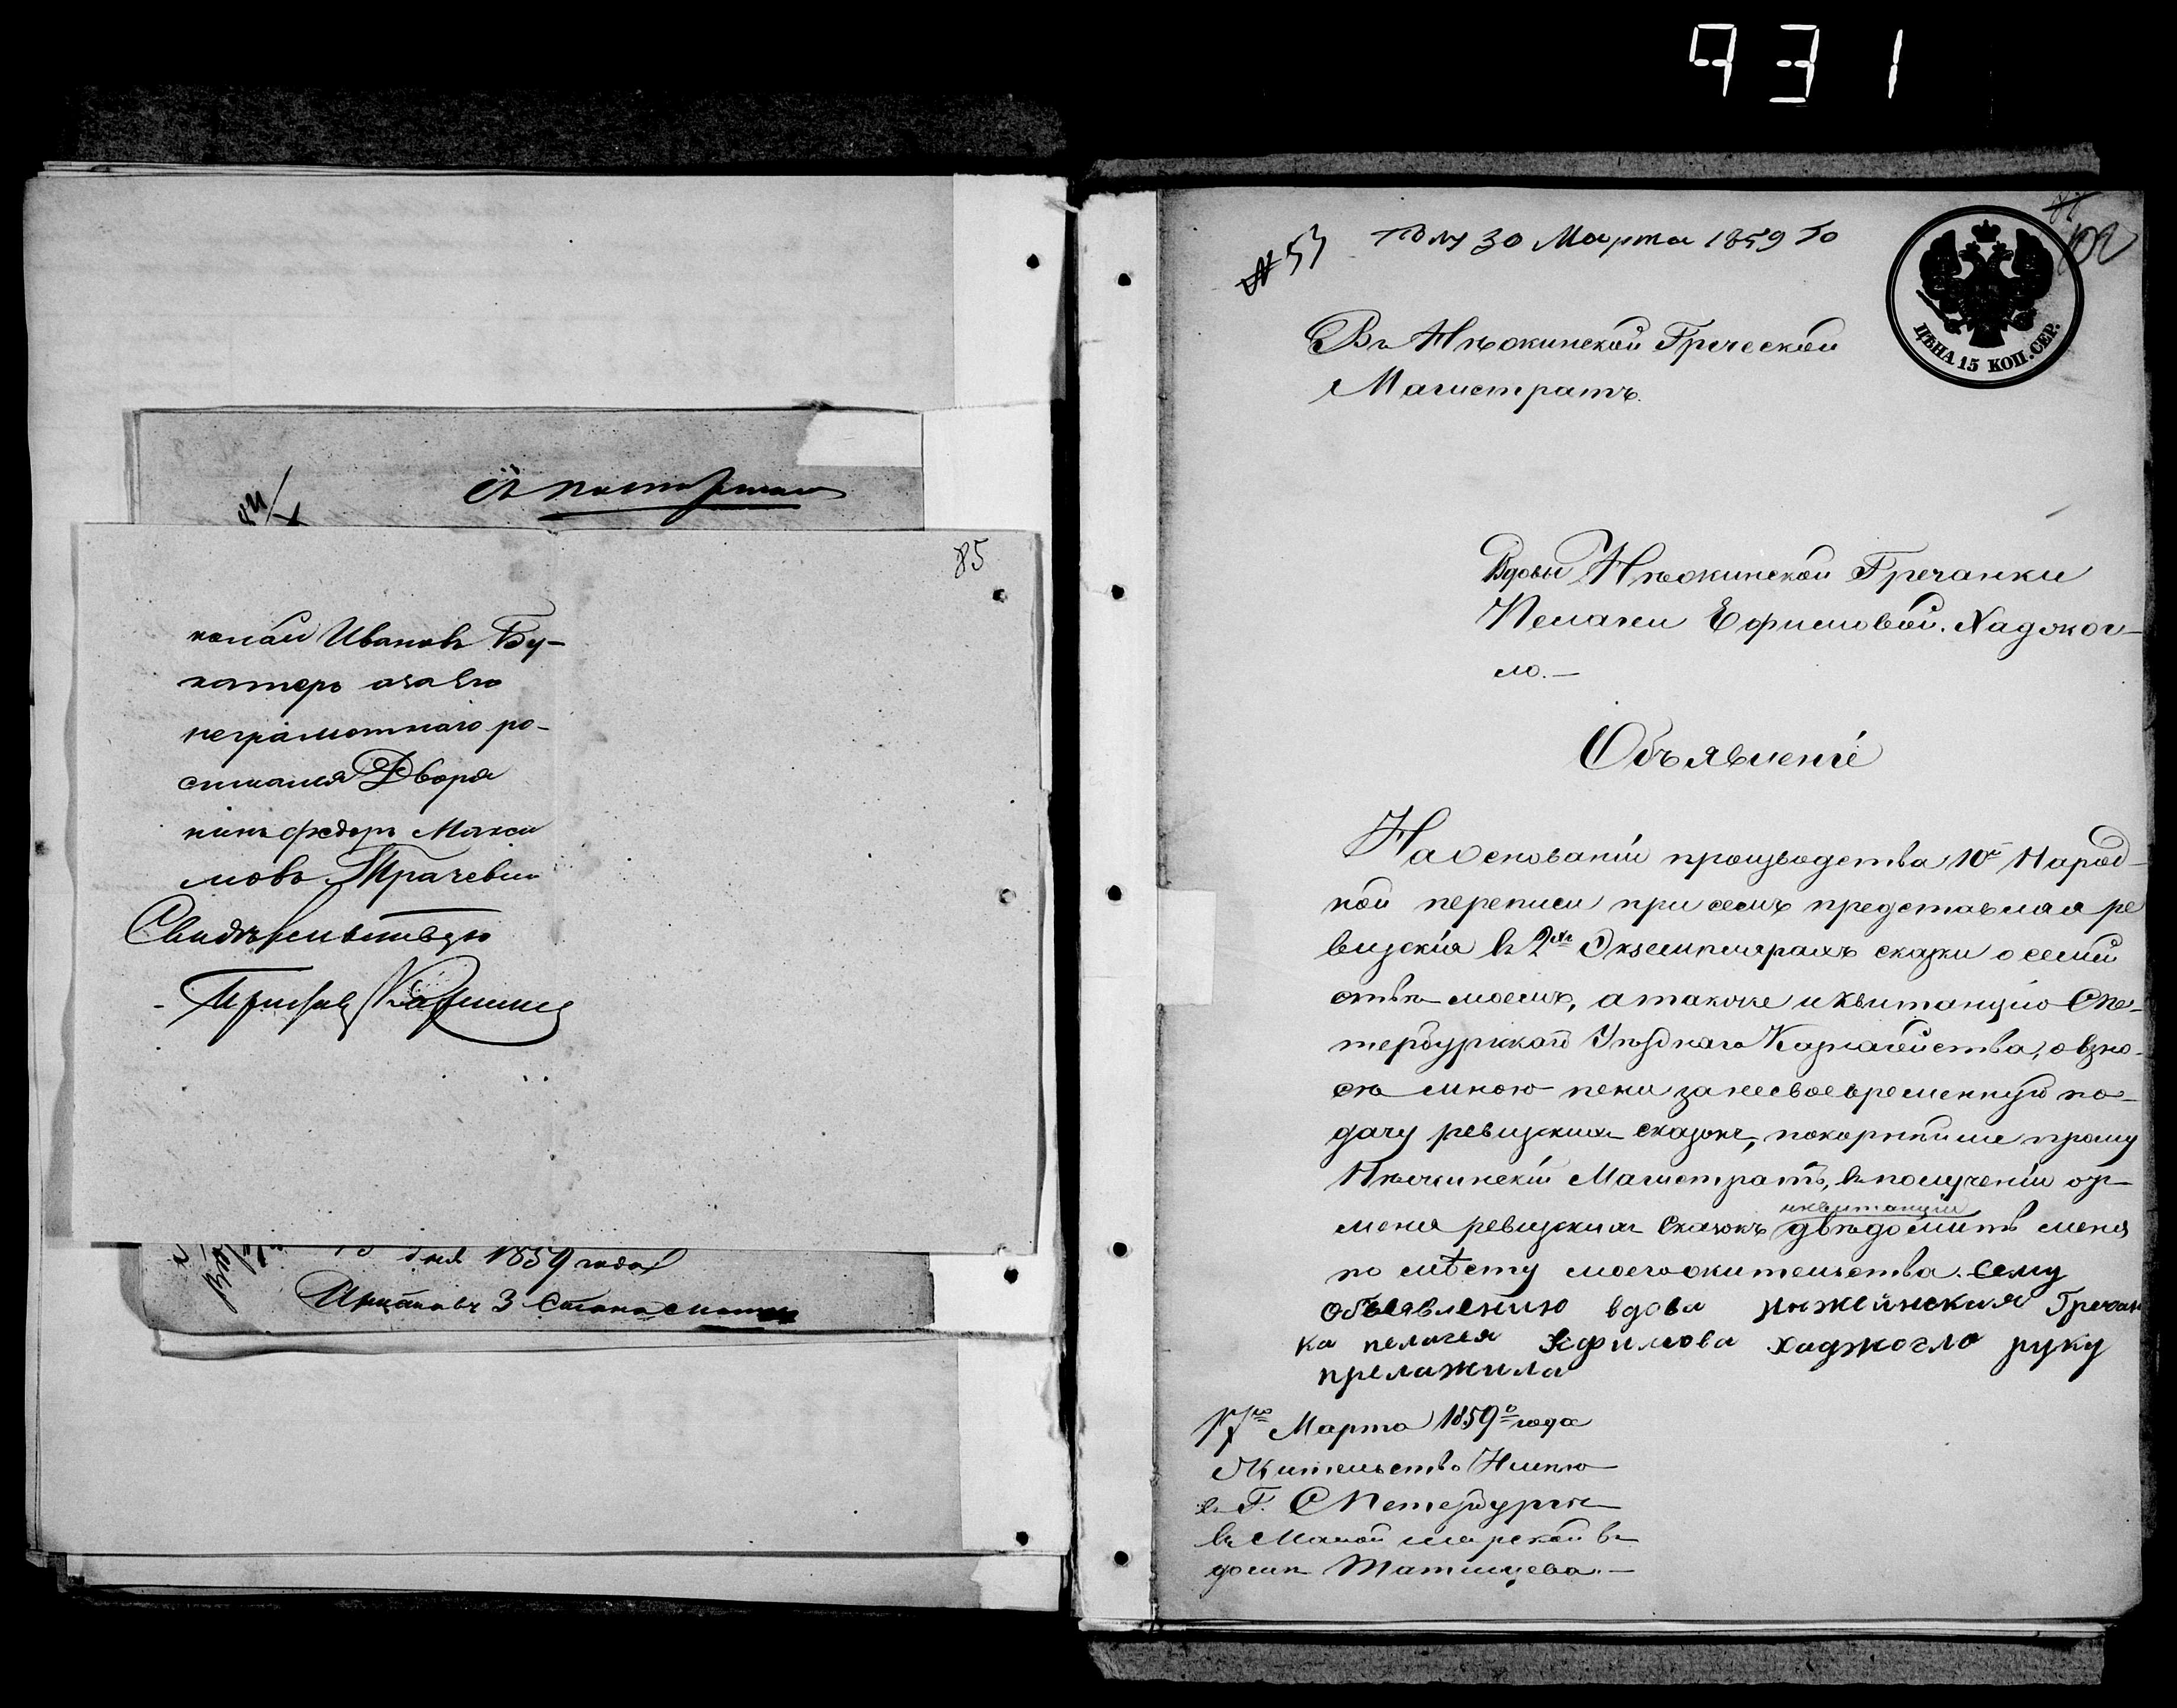 931
85
колай Иванов Бу-
неграмотнаго ро-
списался Дворя
нинъ Федоръ Макси
мовъ Трачевск
Свидѣтельствую
дня 1859 года
Приставъ 3 Стана
№ 53
Пол 30 Марта 1859 Го
102
ЦѢНА 15 КОП. СЕР.
Въ Нѣжинской Греческой
Магистратъ.
Вдовы Нѣжинской Гречанки
Пелагеи Ефимовой Хаджог-
ло. —
Объявленіе
На основаніи производства 10й Народ-
ной переписи при семъ представляя ре
визскія въ 2хъ Экземплярахъ сказки о семей
ствѣ моемъ, а также и квитанцію СПе-
тербургскаго Уѣзднаго Казначейства, о взно-
сѣ мною пени за несвоевременную по-
дачу ревизкихъ сказокъ, покорнѣйше прошу
Нѣжинскій Магистратъ, въ полученіи от
и квитанціи
меня ревизкихъ Сказокъ увѣдомить меня
по мѣсту моего жительства. Сему
объявлению вдова нѣжинская Гречан
ка пелагея Эфимова хаджогло руку
преложила
17го Марта 1859о года
Жительство Имѣю
въ Г. СПетербургѣ
въ Малой морской въ
домѣ Татищева. —